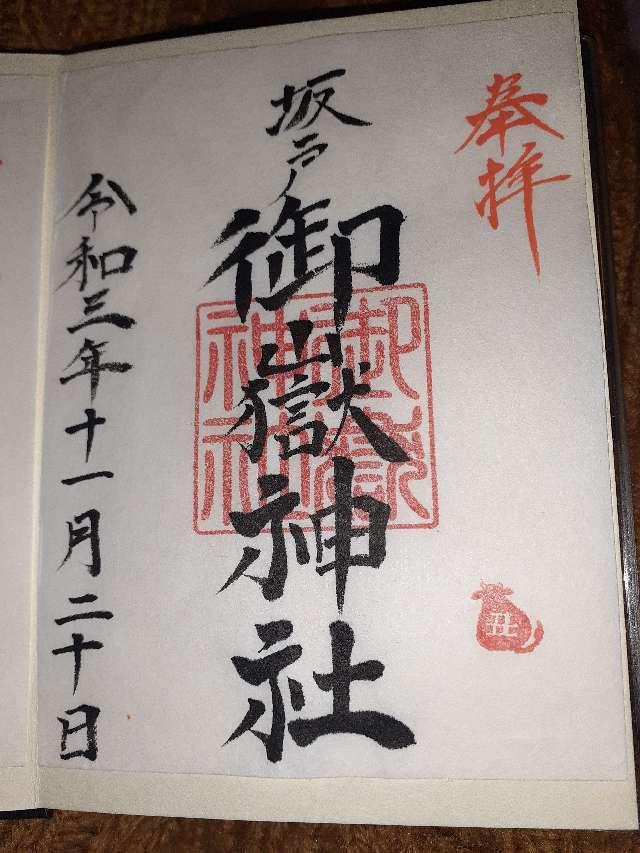 奉拝
坂戸
御嶽神社
御嶽
神社
丑
令和三年十一月二十日